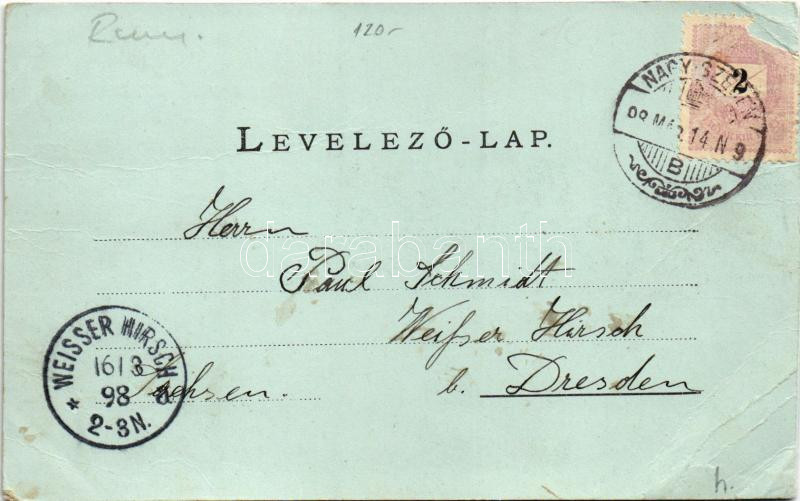 120-
2
NAGY-SZEBEN
98 MÁR 14 N 9
B
LEVELEZŐ-LAP.
Herrn
Paul Schmidt
Weißer Hirsch
b. Dresden
Sachsen.
WEISSER HIRSCH
16 / 3
98
2-3N.
darabanth
h.